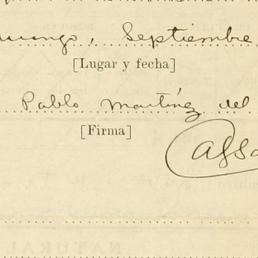 Septiembre
[Lugar y fecha]
Pablo Martínez del
[Firma]
NATURAL